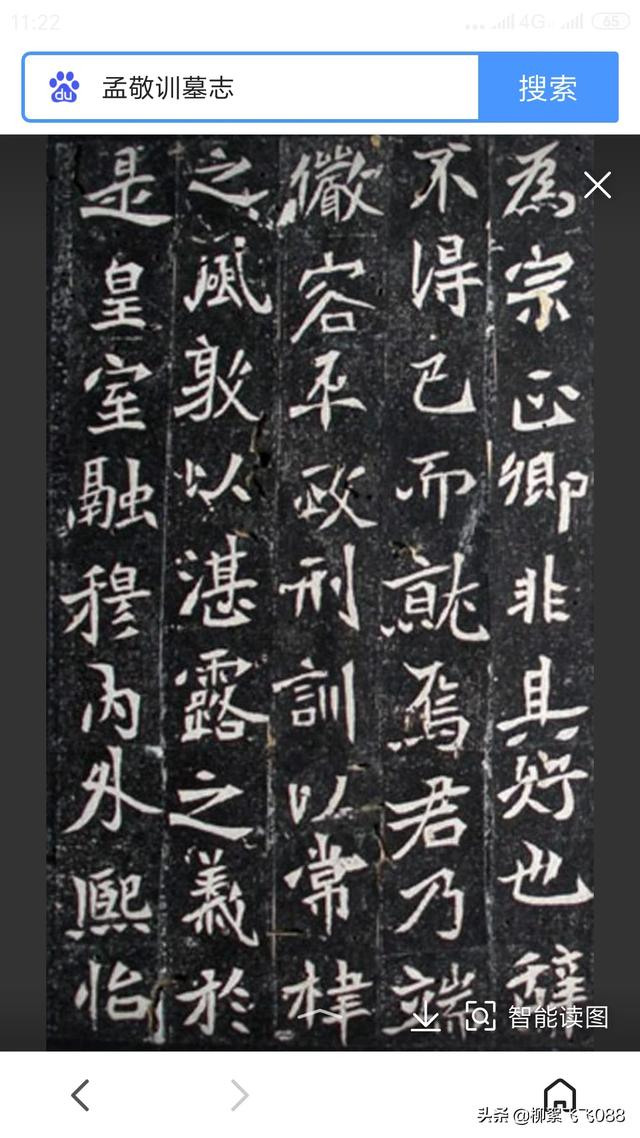 11:22 4G 65
孟敬训墓志
搜索
為宗正卿非其好也辭
不得已而就焉君乃端
儼容平政刑訓以常棣
之風敦以湛露之義於
是皇室融穆内外熙怡
智能读图
头条 @柳絮飞飞088